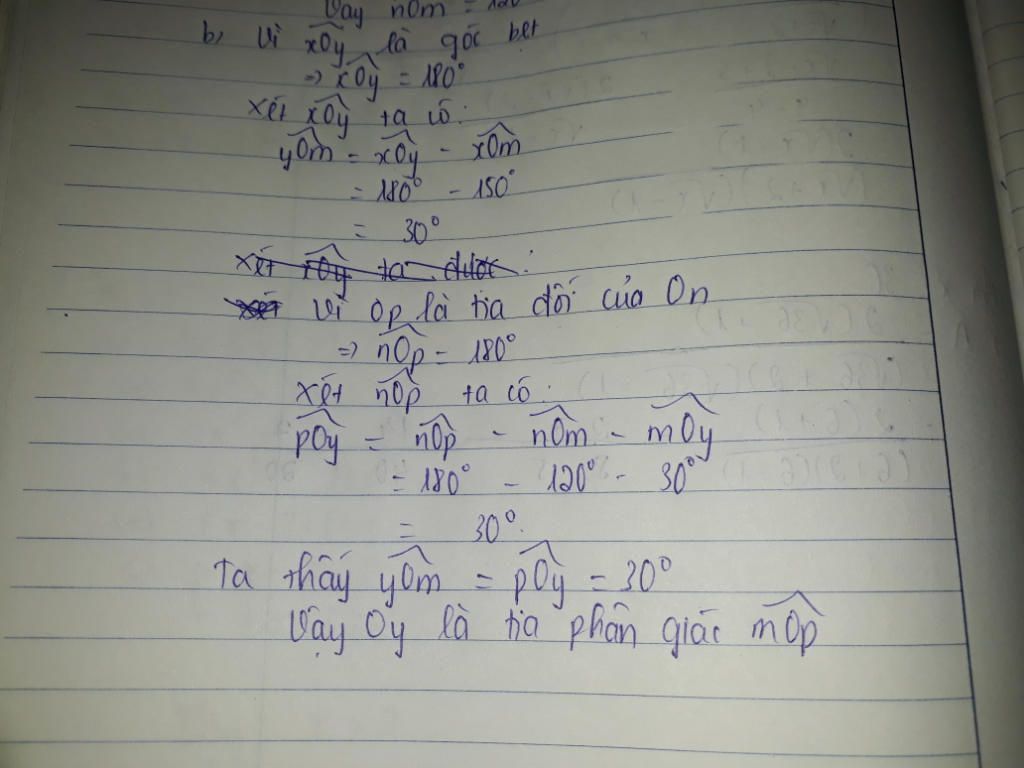 Vậy nOm = 120
b, Vì xOy là góc bẹt
=> xOy = 180°
xét xOy ta có:
yOm = xOy - xOm
= 180° - 150°
= 30°
xét xOy ta được:
xét Vì Op là tia đối của On
=> nOp = 180°
xét nOp ta có:
pOy = nOp - nOm - mOy
= 180° - 120° - 30°
= 30°.
Ta thấy yOm = pOy = 30°
Vậy Oy là tia phân giác mOp